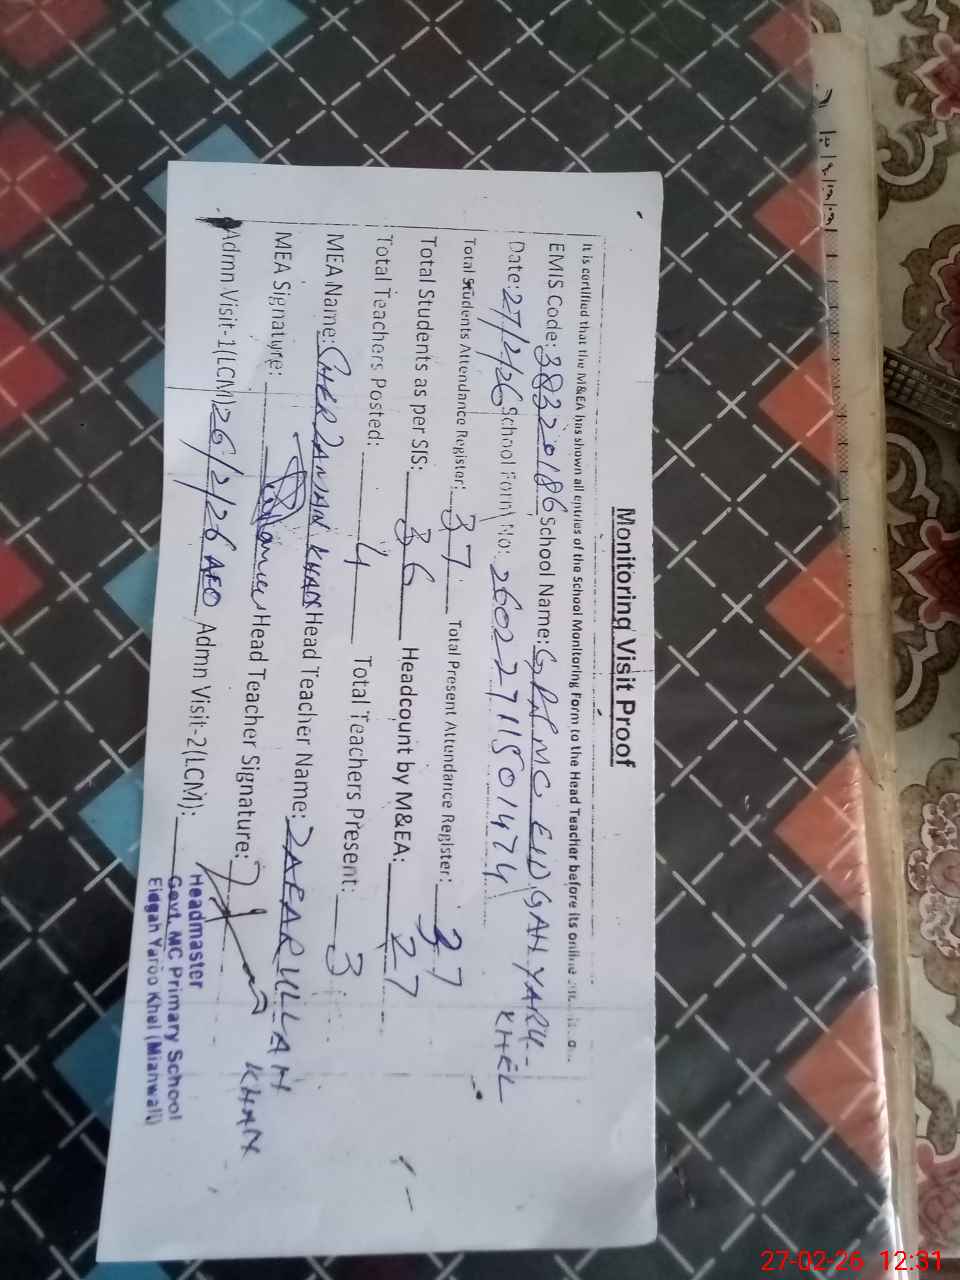 Monitoring Visit Proof
It is certified that the M&EA has shown all entries of the School Monitoring Form to the Head Teacher before its online
EMIS Code: 38320186 School Name: G.P.S MC EIDGAH YARU-
KHEL
Date: 27/2/26 School Form No: 26022711501474
Total Students Attendance Register: 37 Total Present Attendance Register: 37
Total Students as per SIS: 36 Headcount by M&EA: 27
Total Teachers Posted: 4 Total Teachers Present: 3
MEA Name: SHER ZAMAN KHAN Head Teacher Name: ZAFARULLAH
KHAN
MEA Signature: Head Teacher Signature:
Admn Visit-1(LCM) 26/2/26 AEO Admn Visit-2(LCM):
Headmaster
Govt. MC Primary School
Eidgah Yaroo Khel (Mianwali)
27-02-26 12:31